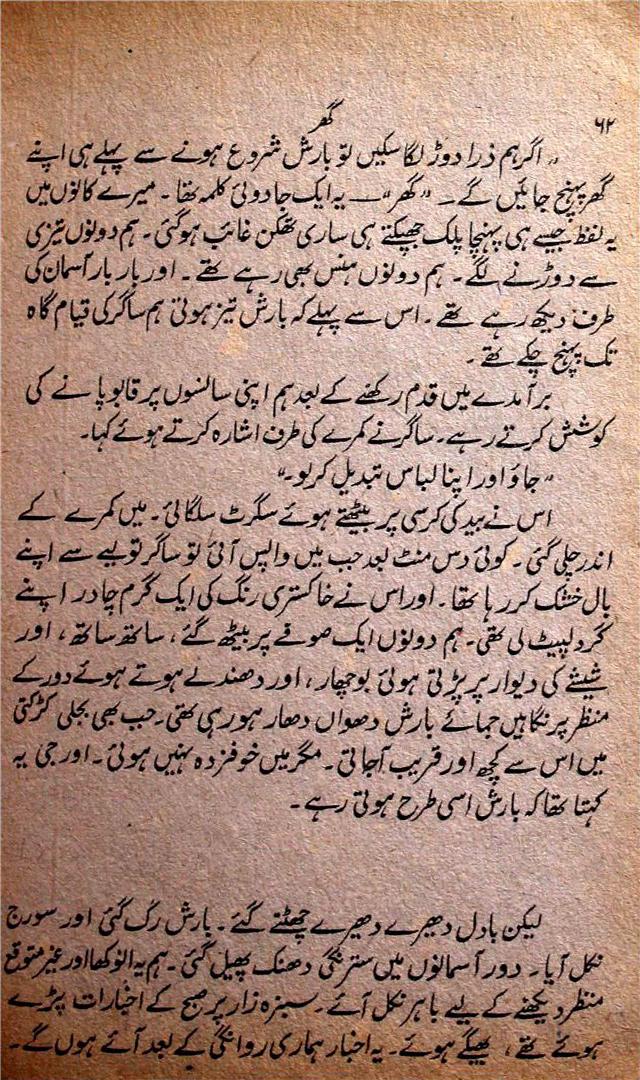 ۶۲
گھر
"اگر ہم ذرا دوڑ لگا سکیں تو بارش شروع ہونے سے پہلے ہی اپنے
گھر پہنچ جائیں گے۔ "گھر" — یہ ایک جادوئی کلمہ تھا۔ میرے کانوں میں
یہ لفظ جیسے ہی پہنچا پلک جھپکتے ہی ساری تھکن غائب ہو گئی۔ ہم دونوں تیزی
سے دوڑنے لگے۔ ہم دونوں ہنس بھی رہے تھے۔ اور بار بار آسمان کی
طرف دیکھ رہے تھے۔ اس سے پہلے کہ بارش تیز ہوتی ہم ساگر کی قیام گاہ
تک پہنچ چکے تھے۔
برآمدے میں قدم رکھنے کے بعد ہم اپنی سانسوں پر قابو پانے کی
کوشش کرتے رہے۔ ساگر نے کمرے کی طرف اشارہ کرتے ہوئے کہا۔
"جاؤ اور اپنا لباس تبدیل کر لو۔"
اس نے بید کی کرسی پر بیٹھتے ہوئے سگرٹ سلگائی۔ میں کمرے کے
اندر چلی گئی۔ کوئی دس منٹ بعد جب میں واپس آئی تو ساگر تولیے سے اپنے
بال خشک کر رہا تھا۔ اور اس نے خاکستری رنگ کی ایک گرم چادر اپنے
گرد لپیٹ لی تھی۔ ہم دونوں ایک صوفے پر بیٹھ گئے، ساتھ ساتھ، اور
شیشے کی دیوار پر پڑتی ہوئی بوچھار، اور دھندلے ہوتے ہوئے دور کے
منظر پر نگاہیں جمائے بارش دھواں دھار ہو رہی تھی۔ جب بھی بجلی کڑکتی
میں اس سے کچھ اور قریب آجاتی۔ مگر میں خوفزدہ نہیں ہوئی۔ اور جی یہ
کہتا تھا کہ بارش اسی طرح ہوتی رہے۔
لیکن بادل دھیرے دھیرے چھٹتے گئے۔ بارش رک گئی اور سورج
نکل آیا۔ دور آسمانوں میں سترنگی دھنک پھیل گئی۔ ہم یہ انوکھا اور غیر متوقع
منظر دیکھنے کے لیے باہر نکل آئے۔ سبزہ زار پر صبح کے اخبارات پڑے
ہوئے تھے، بھیگے ہوئے۔ یہ اخبار ہماری روانگی کے بعد آئے ہوں گے۔